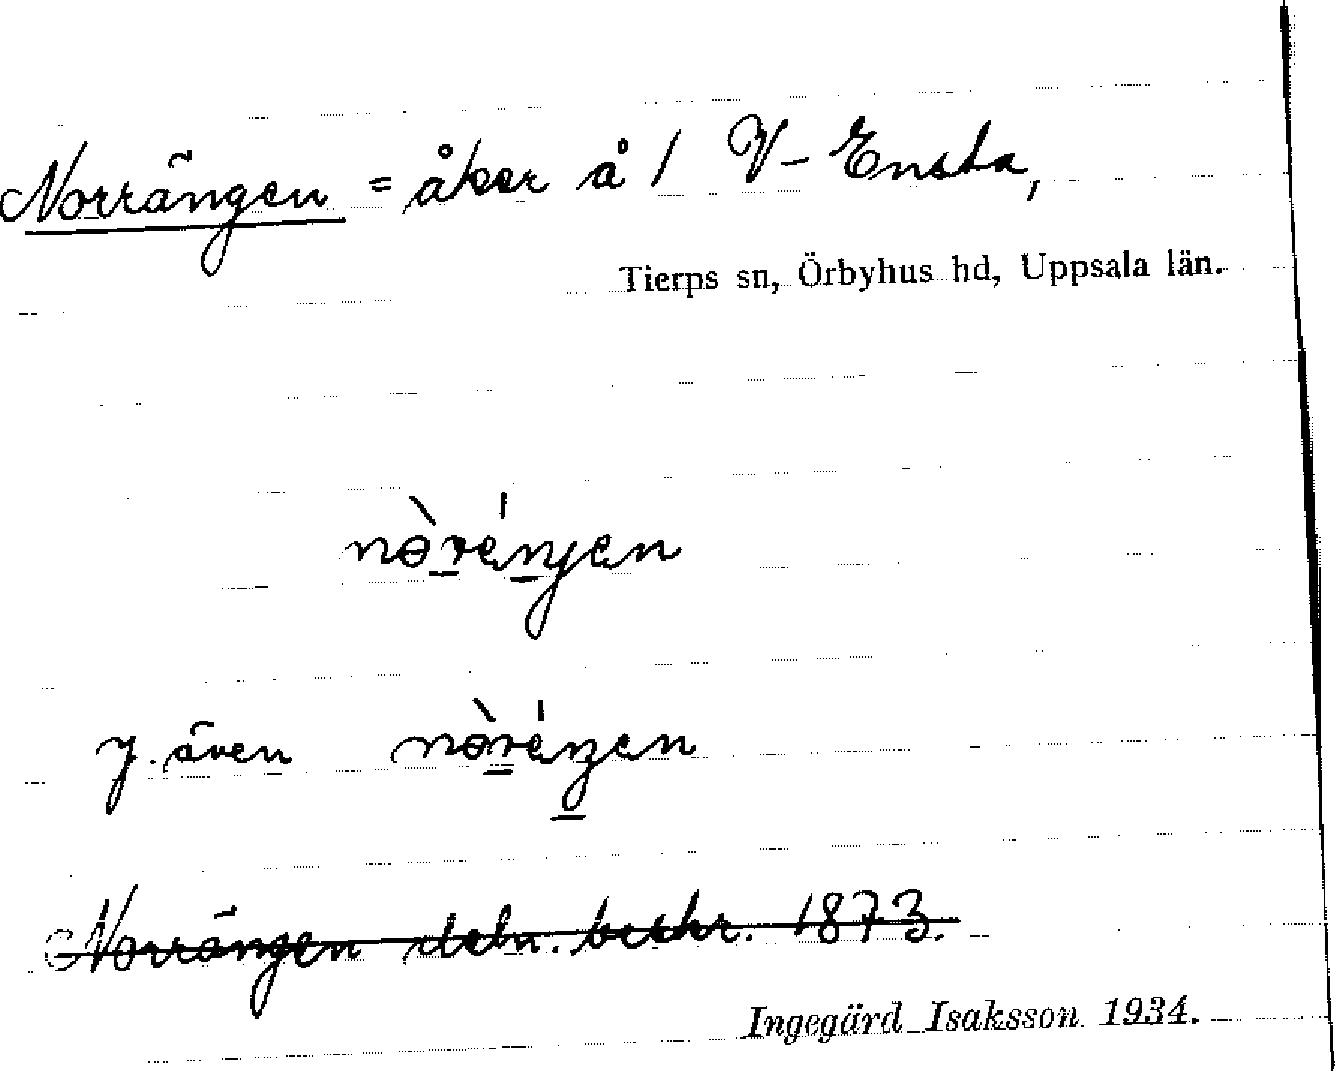 Norrängen = åker å / V-Ensta,
Tierps sn, Örbyhus hd, Uppsala län.
även
Norrängen deln. beskr. 1873.
Ingegärd Isaksson 1934.